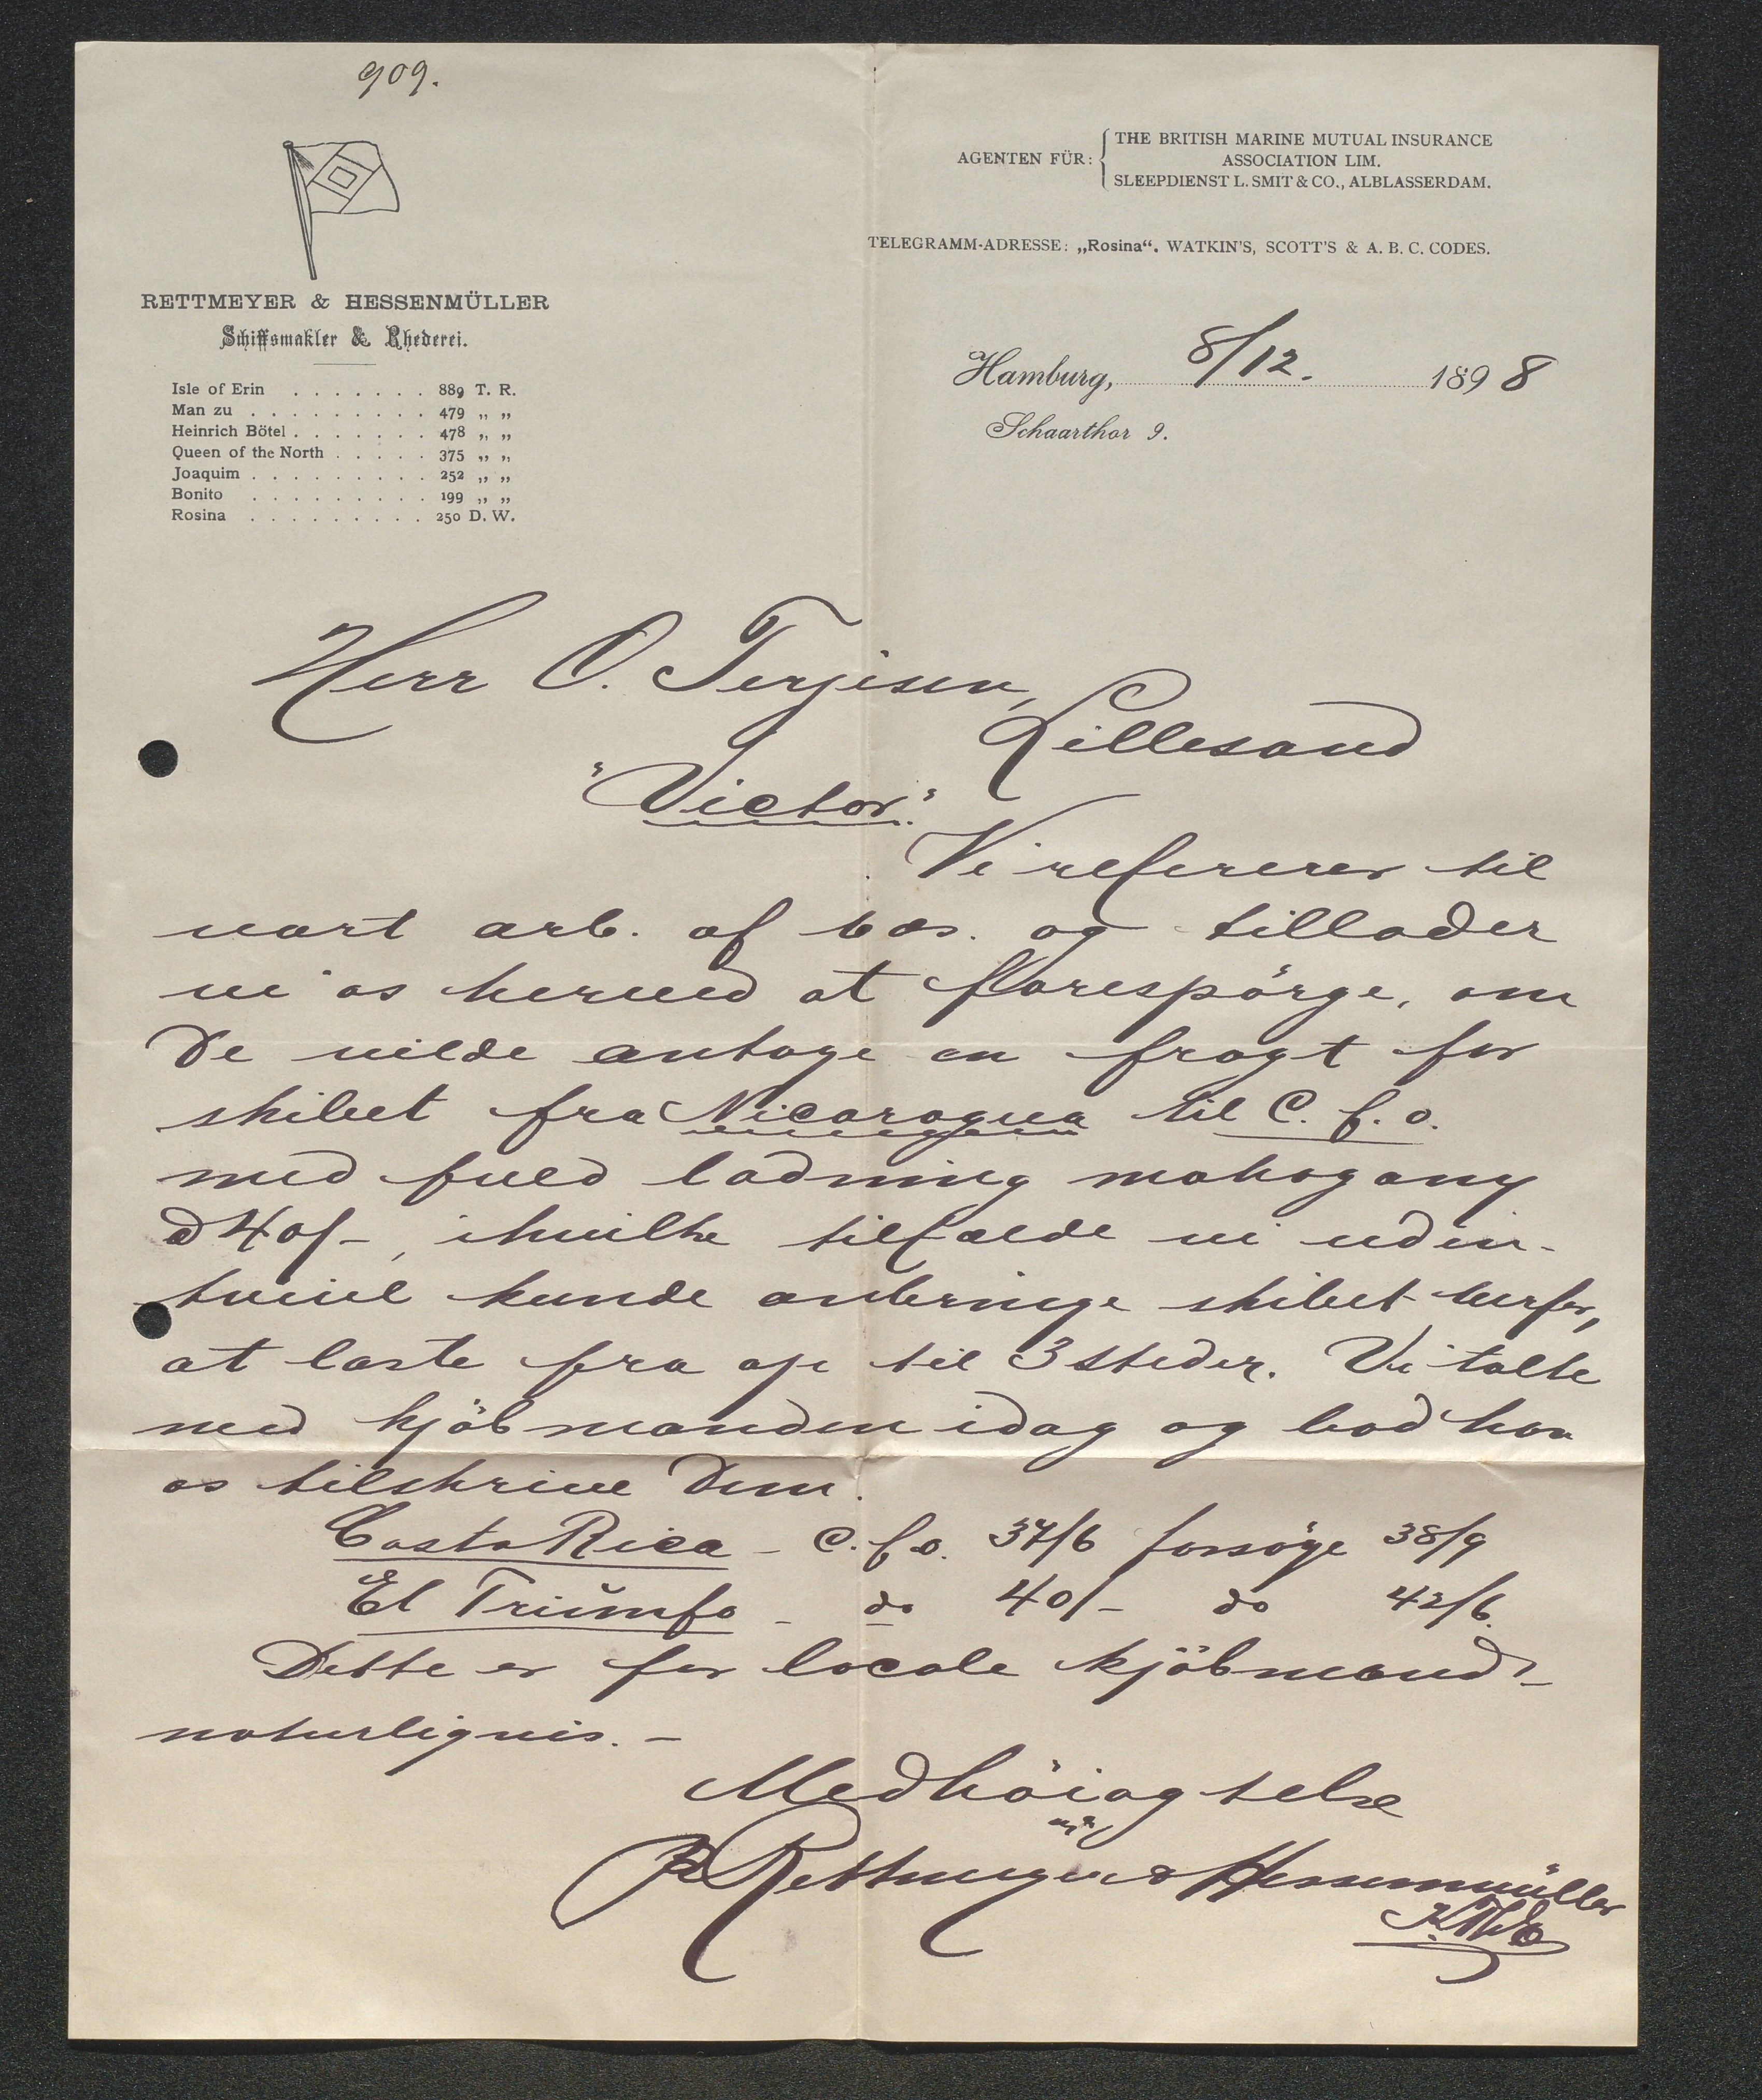 909.
RETTMEYER & HESSENMÜLLER
Schiffsmakler & Rhederei.
Isle of Erin . . . . . . . 889 T. R.
Man zu . . . . . . . . . 479 „ „
Heinrich Bötel . . . . . . . 478 „ „
Queen of the North . . . . . 375 „ „
Joaquim . . . . . . . . . 252 „ „
Bonito . . . . . . . . . 199 „ „
Rosina . . . . . . . . . 250 D. W.
AGENTEN FÜR:
THE BRITISH MARINE MUTUAL INSURANCE
ASSOCIATION LIM.
SLEEPDIENST L. SMIT & CO., ALBLASSERDAM.
TELEGRAMM-ADRESSE: „Rosina“. WATKIN'S, SCOTT'S & A. B. C. CODES.
Hamburg, 8/12. 1898
Schaarthor 9.
Herr O. Terjesen,
Lillesand
"Victor".
Vi refererer til
vort arb. af og tillader
vi os herved at forespörge, om
De vilde antage en fragt for
skibet fra Nicaragua til C. f. o.
med fuld ladning mahogany
a 40/-, ihvilke tilfælde vi uden
tvivl kunde anbringe skibet herfor,
at laste fra op til 3 steder. Vi talte
med kjöbmanden idag og bad han
os tilskrive Dem.
Costa Rica - C. f. o. 37/6 forsöge 38/9
El Triumfo - do 40/- do 42/6.
Dette er for locale kjöbmænd -
naturligvis. -
Med höiagtelse
Rettmeyer & Hessenmüller